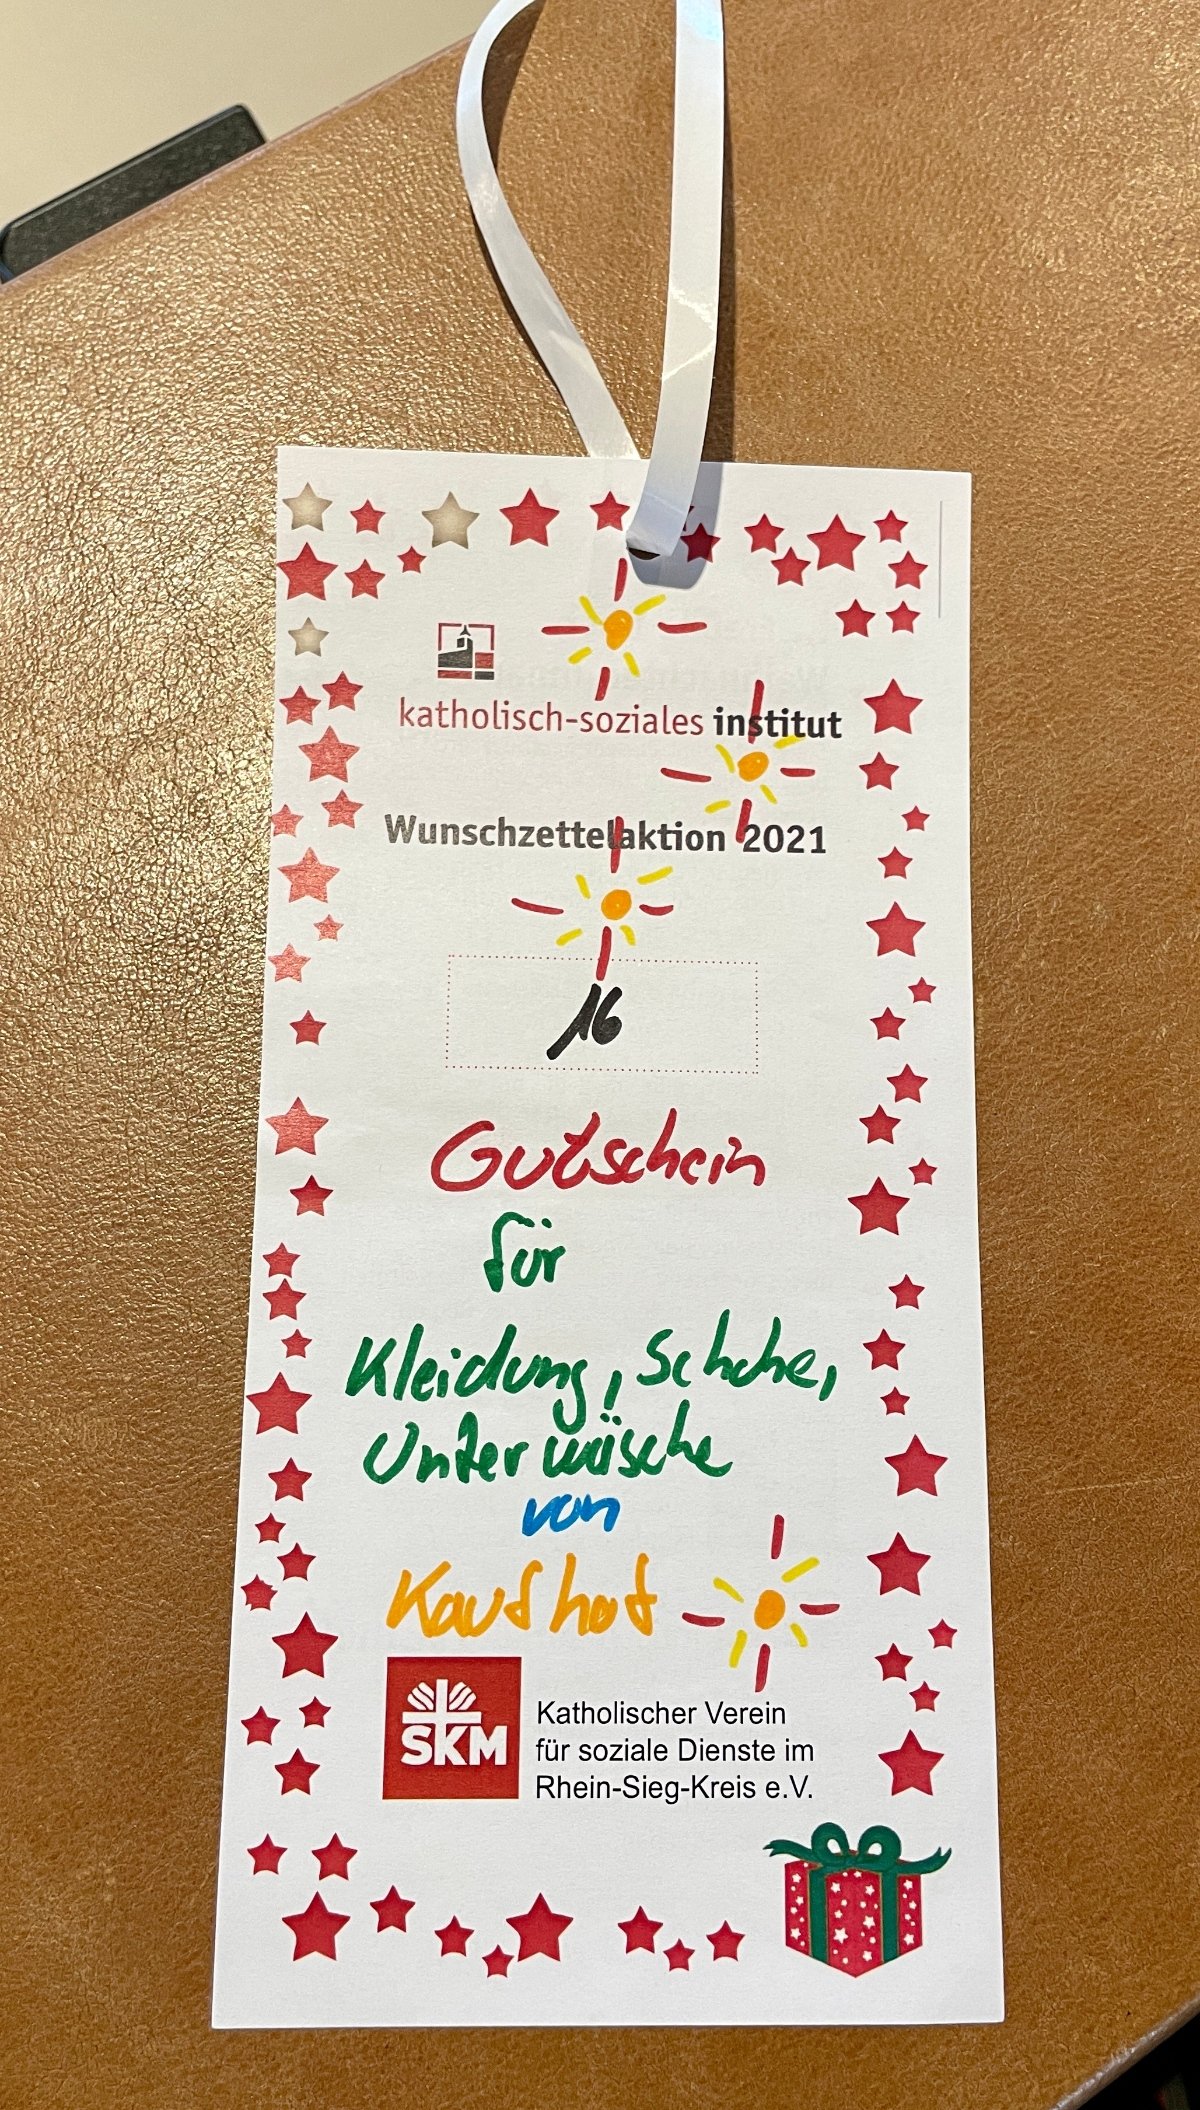 katholisch-soziales institut
Wunschzettelaktion 2021
16
Gutschein
für
Kleidung, Schuhe,
Unterwäsche
von
Kaufhof
SKM
Katholischer Verein
für soziale Dienste im
Rhein-Sieg-Kreis e.V.